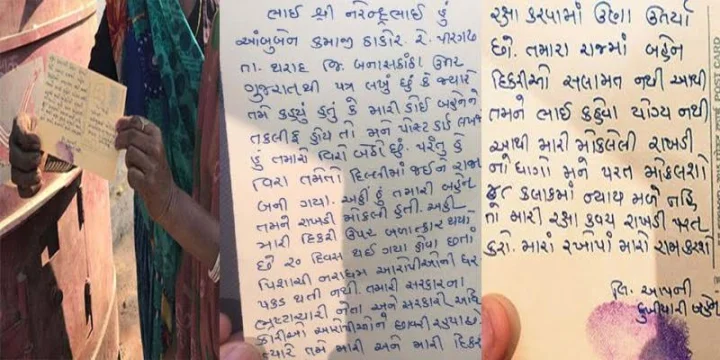 ભાઈ શ્રી નરેન્દ્રભાઈ હું
આંબુબેન કમાજી ઠાકોર. રે. પીરગઢ
તા. થરાદ જિ. બનાસકાંઠા ઉત્તર
ગુજરાતથી પત્ર લખું છું કે જ્યારે
તમે કહ્યું હતું કે મારી કોઈ બહેનને
તકલીફ હોય તો મને પોસ્ટ કાર્ડ લખજો
હું તમારો વિરો બેઠો છું. પરંતુ હે
વિરા તમેતો દિલ્હીમાં જઈને રાજા
બની ગયા. અહીં હું તમારી બહેન
તમને રાખડી મોકલી હતી. અહીં
મારી દિકરી ઉપર બળાત્કાર થયો
છે ૨૦ દિવસ થઈ ગયા હોવા છતાં
પિશાચી નરાધમ આરોપીઓની ધર
પકડ થતી નથી. તમારી સરકારના
ભ્રષ્ટાચારી નેતા અને સરકારી અધિ
કારીઓ આરોપીઓને છાવરી રહ્યા છે.
ત્યારે તમે મારી અને મારી દિકરી
રક્ષા કરવામાં ઉણા ઉતર્યા
છો. તમારા રાજમાં બહેન
દિકરીઓ સલામત નથી આથી
તમને ભાઈ કહેવા યોગ્ય નથી
આથી મારી મોકલેલી રાખડી
નો ધાગો મને પરત મોકલશો
કલાકમાં ન્યાય મળે નહિ
તો મારી રક્ષા કવચ રાખડી પરત
કરો. મારાં રખોપાં મારો રામ કરશે
લિ. આપની
દુખીયારી બહેન